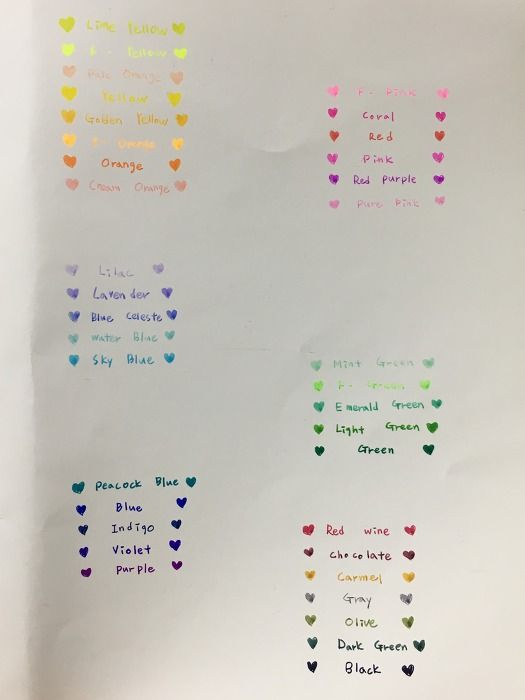 Lime Yellow
F - Yellow
Pale Orange
Yellow
Golden Yellow
F - Orange
Orange
Cream Orange
F - Pink
Coral
Red
Pink
Red purple
Pure Pink
Lilac
Lavender
Blue celeste
water Blue
Sky Blue
Mint Green
F - Green
Emerald Green
Light Green
Green
Peacock Blue
Blue
Indigo
Violet
purple
Red wine
chocolate
Carmel
Gray
Olive
Dark Green
Black